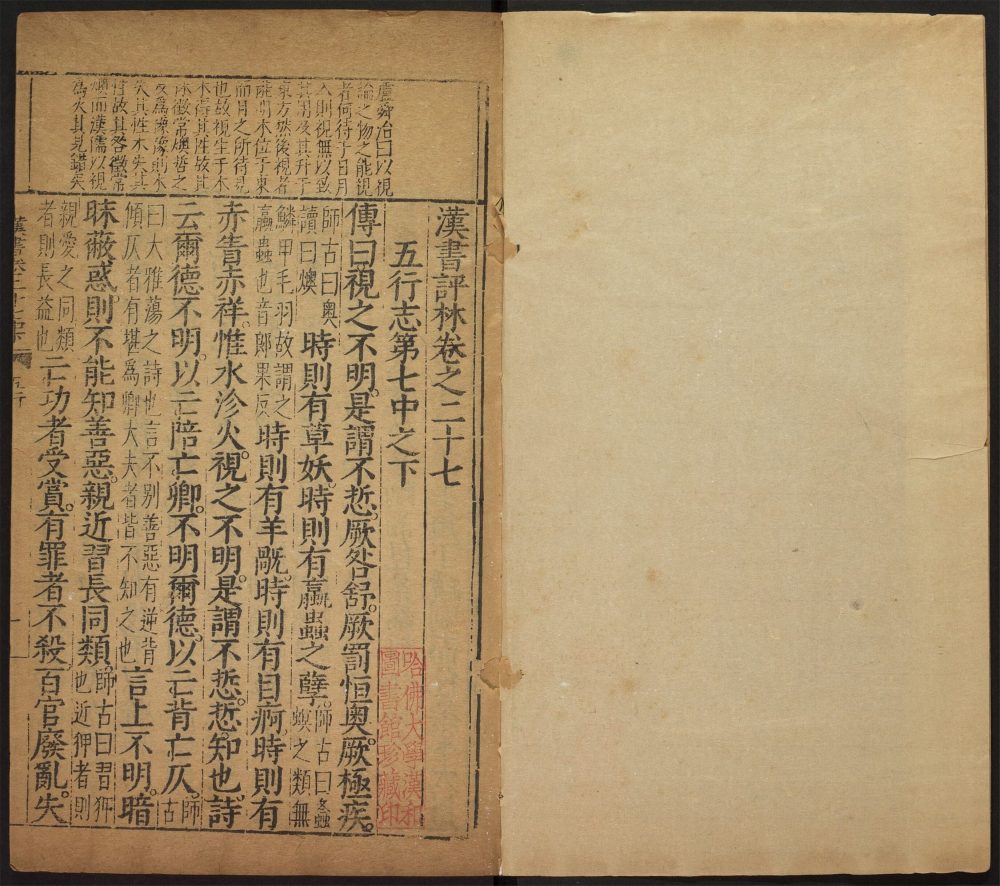 盧舜治曰以視
論之物之能視
者何待于日月
入則視無以致
其用及其升于
東方然後視者
能明木位于東
而目之所待見
也故視生于木
木得其性故其
休徵常燠哲之
反爲豫豫則木
失其性木失其
性故其咎徵常
燠而漢儒以視
爲火其見錯矣
漢書評林卷之二十七
五行志第七中之下
傳曰視之不明。是謂不悊。厥咎舒。厥罰恒奧。厥極疾。
師古曰奧讀曰燠時則有草妖。時則有蠃蟲之孽。師古曰螽螟之類無
鱗甲毛羽故謂之蠃蟲也音郎果反時則有羊旤。時則有目痾。時則有
赤眚赤祥。惟水沴火。視之不明。是謂不悊。悊。知也。詩
云爾德不明。以亡陪亡卿。不明爾德。以亡背亡仄。師古
曰大雅蕩之詩也言不别善惡有逆背傾仄者有堪爲卿大夫者皆不知之也言上不明。暗
昧蔽惑。則不能知善惡。親近習。長同類。師古曰習狎也近狎者則
親愛之同類者則長益也亡功者受賞。有罪者不殺。百官廢亂。失
五行
一
哈佛大學漢和
圖書館珍藏印